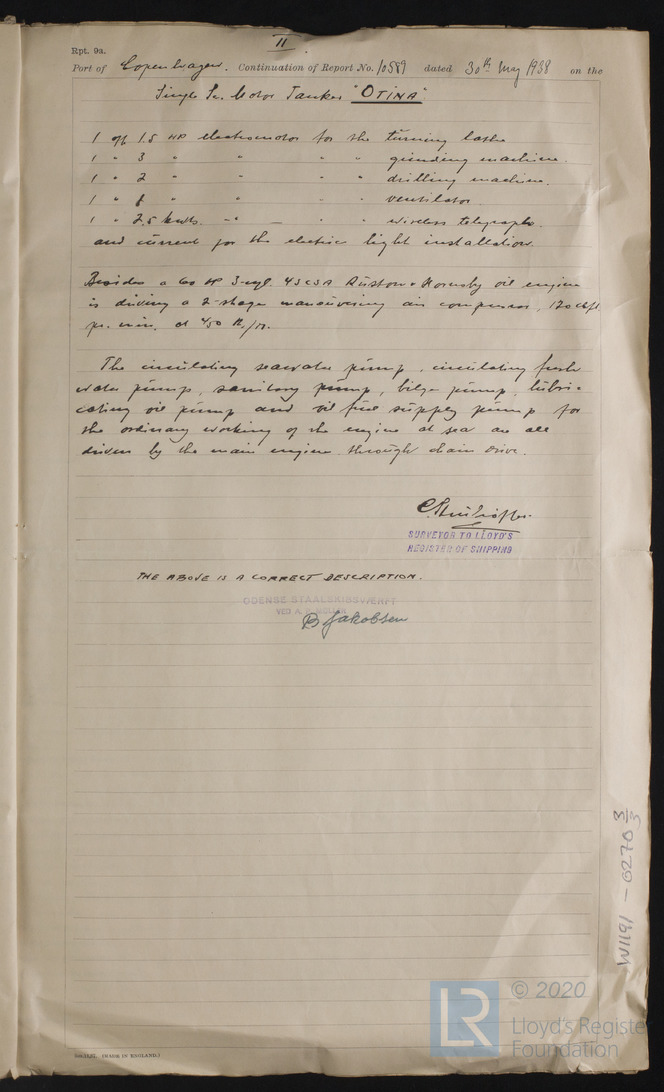 II.
Rpt. 9a.
Port of Copenhagen. Continuation of Report No. 10589 dated 30th May 1938 on the
Single Sc. Motor Tanker "OTINA"
1 off 1.5 HP electromotor for the turning lathe
1 " 3 " " " " grinding machine.
1 " 2 " " " " drilling machine.
1 " 1 " " " " ventilator.
1 " 2.5 kwts. -"- — " " wireless telegraph.
and current for the electric light installation.
Besides a 60 HP 3-cyl. Ruston & Hornsby oil engine
is driving a 2-stage manoeuvring air compressor, 120 cbft
pr. min. at 450 lt./
The circulating seawater pump, circulating fresh
water pump, sanitary pump, bilge pump, lubri-
cating oil pump and oil fuel supply pump for
the ordinary working of the engine at sea are all
driven by the main engine through chain drive.
SURVEYOR TO LLOYD'S
REGISTER OF SHIPPING
THE ABOVE IS A CORRECT DESCRIPTION.
ODENSE STAALSKIBSVÆRFT
VED A. P. MØLLER
B Jakobsen
W1191-0270 3/3
(MADE IN ENGLAND.)
LR
© 2020
Lloyd's Registe
Foundation